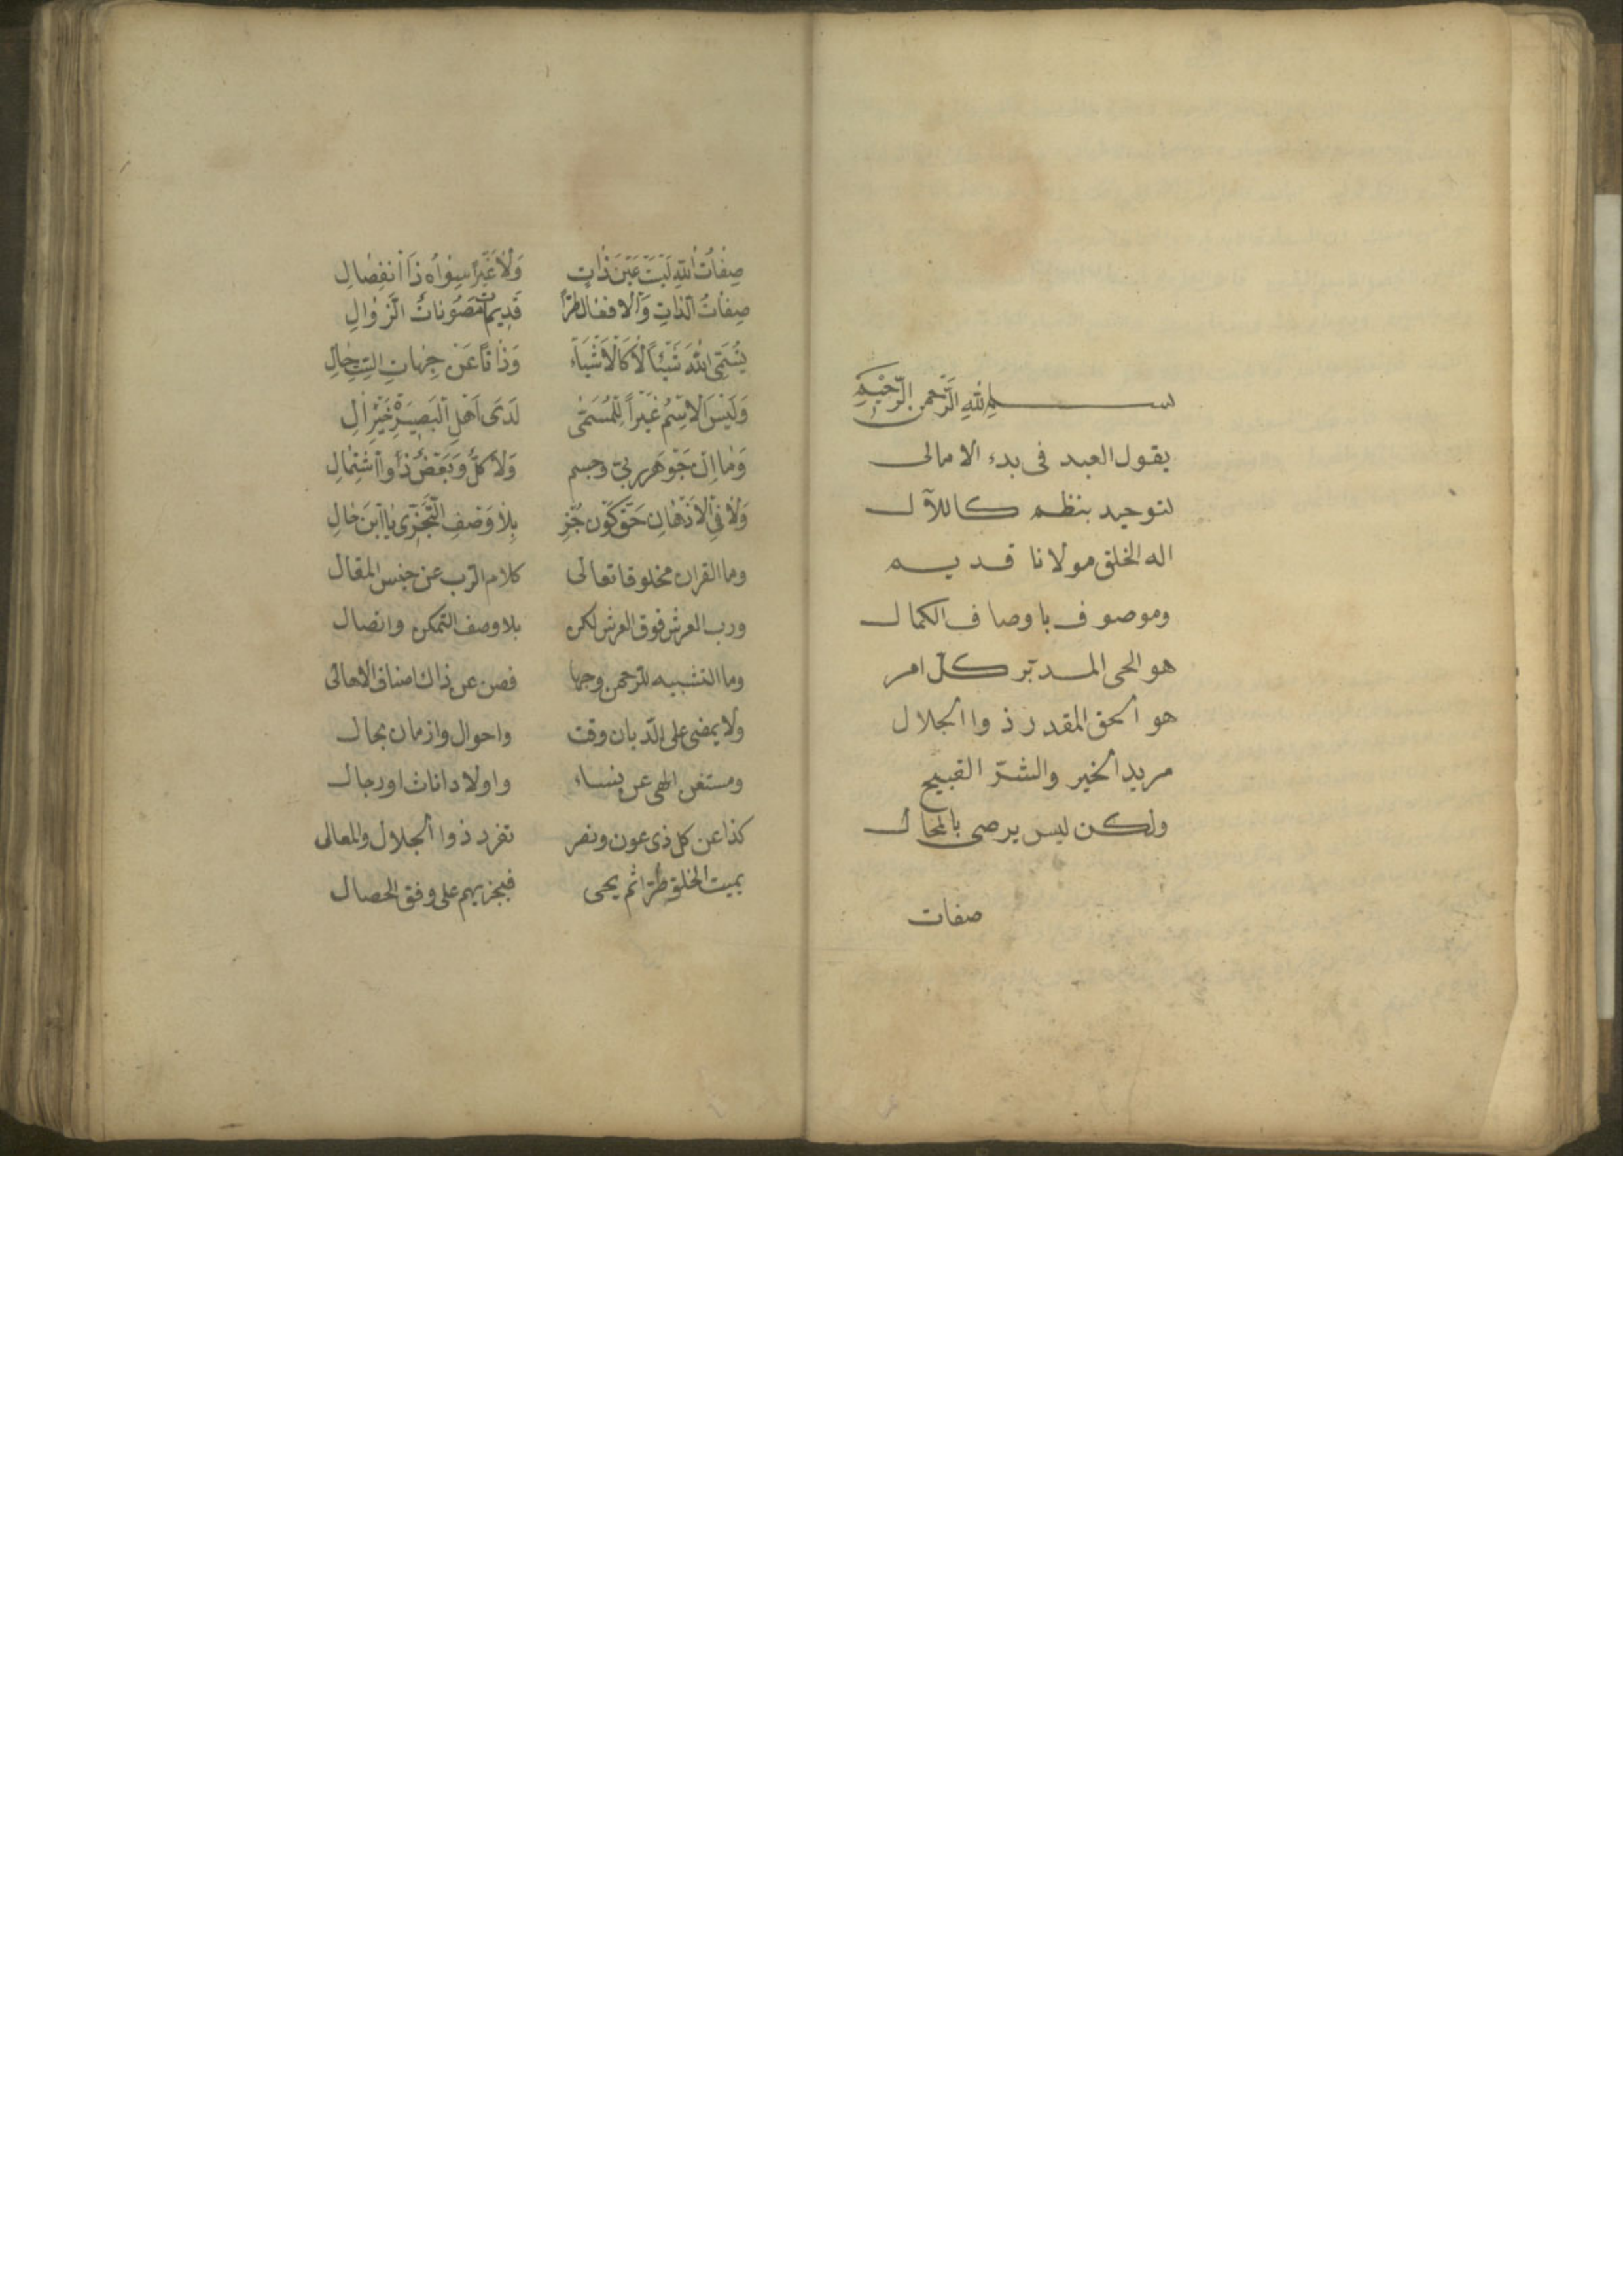 بســـم الله الرَّحمن الرَّحيم
يقول العبد فى بدء الامالى
لتوحيد بنظم كاللآل
اله الخلق مولانا قديم
وموصوف باوصاف الكمال
هو الحى المدبّر كلّ امر
هو الحق المقدر ذوا الجلال
مريد الخير والشرّ القبيح
ولكن ليس يرضى بالمحال
صفات
صِفَاتُ اللهِ لَيْسَتْ عَيْنَ ذَاتٍ وَلَا غَيْرًا سِوَاهُ ذَا انْفِصَالِ
صِفَاتُ الذَّاتِ وَالْافعَال طرًّا قَدِيمَاتٌ مَصُونَاتُ الزَّوَالِ
نُسَمِّى اللهَ شَيْئًا لَا كَالْاَشْيَاء وَذَاتًا عَنْ جِهَاتِ السِّتِّ خَالِ
وَلَيْسَ الاِسْمُ غَيْرًا لِلْمُسَمَّى لَدَى اَهْلِ الْبَصِيرَةِ خَيْرِ اٰلِ
وَمَا اِنْ جَوْهَر ربىّ وجسم وَلَا كلٌّ وَبَعْضٌ ذُو اشْتِمَالِ
وَلَا فِى الْاَذْهَانِ حَقٌّ كَوْن جُزْءٍ بِلَا وَصْفِ التَّجَزِّى يَا ابْنَ خَالِ
وما القران مخلوقا تعالى كلام الرب عن جنس المقال
ورب العرش فوق العرش لكن بلا وصف التمكن واتصال
وما التشبيه للرحمن وجها فصن عن ذاك اصناف الاهالى
ولا يمضى على الدّيان وقت واحوال وازمان بحال
ومستغن الهى عن نساء واولاد اناث او رجال
كذا عن كل ذى عون ونصر تفرد ذوا الجلال والمعالى
يميت الخلق طرّا ثم يحيى فيجزيهم على وفق الخصال